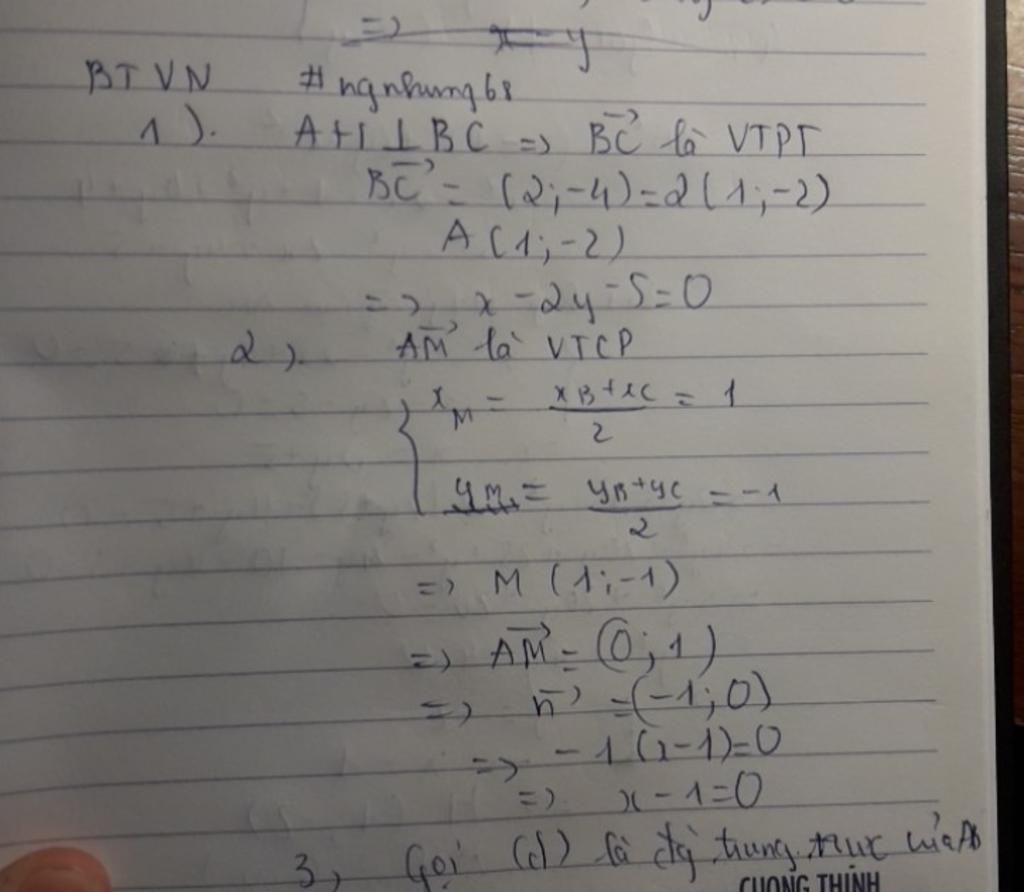 => x = y
BTVN #ngnhung68
1). AH ⊥ BC => BC→ là VTPT
BC→ = (2;-4)=2(1;-2)
A(1;-2)
=> x-2y-5=0
2). AM→ là VTCP
{ xM = (xB+xC)/2 = 1
yM = (yB+yC)/2 = -1
=> M (1;-1)
=> AM→ = (0;1)
=> n→ =(-1;0)
=> -1(x-1)=0
=> x-1=0
3, Gọi (d) là đg trung trực của AB
CUONG THỊNH